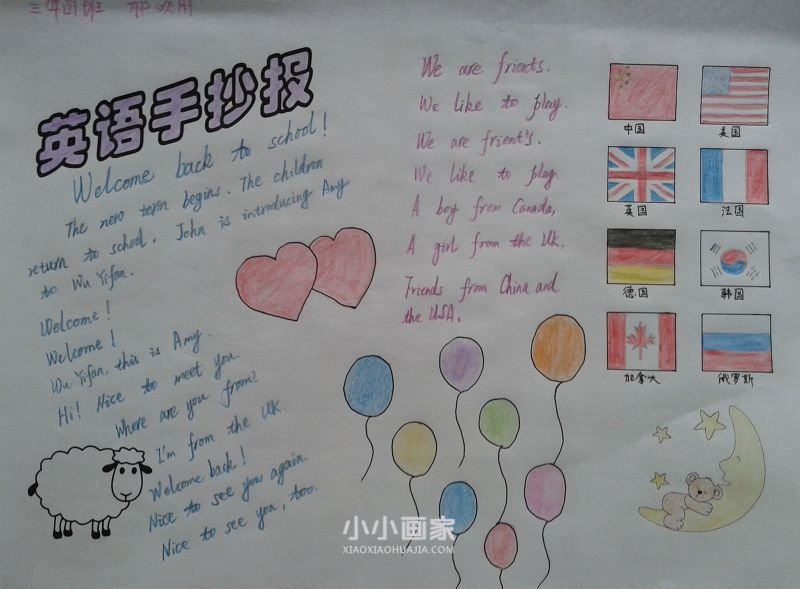 三年四班 郝欢用
英语手抄报
Welcome back to school!
The new term begins. The children
return to school. John is introducing Amy
to Wu Yifan.
Welcome!
Welcome!
Wu Yifan, this is Amy.
Hi! Nice to meet you.
Where are you from?
I'm from the UK.
Welcome back!
Nice to see you again.
Nice to see you, too.
We are frients.
We like to play.
We are frient's.
We like to play
A boy from Canada,
A girl from the UK.
Friends from China and
the USA.
中国 美国
英国 法国
德国 韩国
加拿大 俄罗斯
小小画家
XIAOXIAOHUAJIA.COM